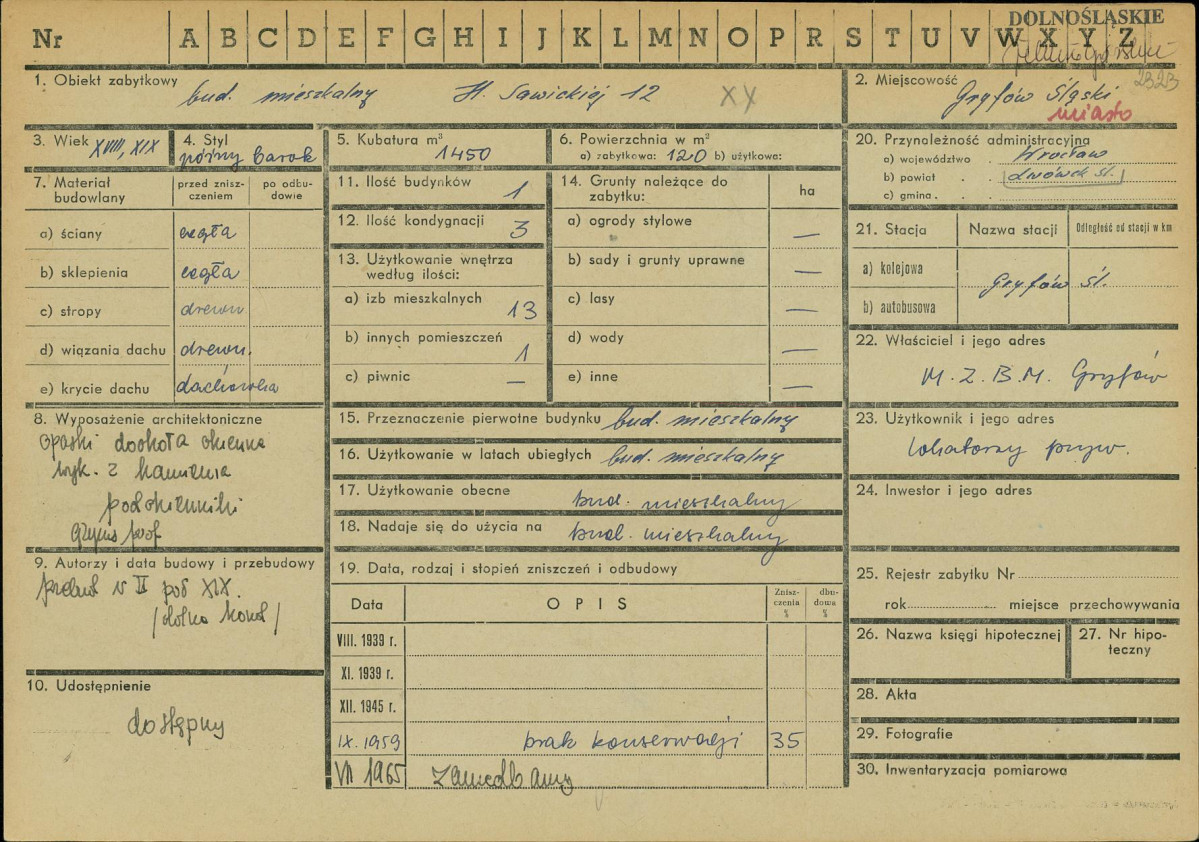 DOLNOŚLĄSKIE
Nr A B C D E F G H I J K L M N O P R S T U V W X Y Z
2323
1. Obiekt zabytkowy
bud. mieszkalny H. Sawickiej 12 XX
2. Miejscowość
Gryfów Śląski
miasto
3. Wiek XVIII, XIX
4. Styl
późny barok
5. Kubatura m³
1450
6. Powierzchnia w m²
a) zabytkowa: 120 b) użytkowa:
7. Materiał budowlany
przed zniszczeniem
po odbudowie
a) ściany cegła
b) sklepienia cegła
c) stropy drewn.
d) wiązania dachu drewn.
e) krycie dachu dachówka
8. Wyposażenie architektoniczne
opaski dookoła okienne
wyk. z kamienia
podokienniki
gzyms prof
9. Autorzy i data budowy i przebudowy
przebud w II poł XIX.
/dolna kond/
10. Udostępnienie
dostępny
11. Ilość budynków 1
12. Ilość kondygnacji 3
13. Użytkowanie wnętrza
według ilości:
a) izb mieszkalnych 13
b) innych pomieszczeń 1
c) piwnic —
14. Grunty należące do
zabytku: ha
a) ogrody stylowe —
b) sady i grunty uprawne —
c) lasy —
d) wody —
e) inne —
15. Przeznaczenie pierwotne budynku bud. mieszkalny
16. Użytkowanie w latach ubiegłych bud. mieszkalny
17. Użytkowanie obecne bud. mieszkalny
18. Nadaje się do użycia na bud. mieszkalny
19. Data, rodzaj i stopień zniszczeń i odbudowy
Data OPIS Zniszczenia % dbudowa %
VIII. 1939 r.
XI. 1939 r.
XII. 1945 r.
IX. 1959 brak konserwacji 35
VII 1965 zaniedbany
20. Przynoleżność administracyjna
a) województwo . Wrocław
b) powiat . . Lwówek Śl.
c) gmina . .
21. Stacja Nazwa stacji Odległość od stacji w km
a) kolejowa
Gryfów Śl.
b) autobusowa
22. Właściciel i jego adres
M. Z. B. M. Gryfów
23. Użytkownik i jego adres
lokatorzy pryw.
24. Inwestor i jego adres
25. Rejestr zabytku Nr
rok miejsce przechowywania
26. Nazwa księgi hipotecznej
27. Nr hipoteczny
28. Akta
29. Fotografie
30. Inwentaryzacja pomiarowa